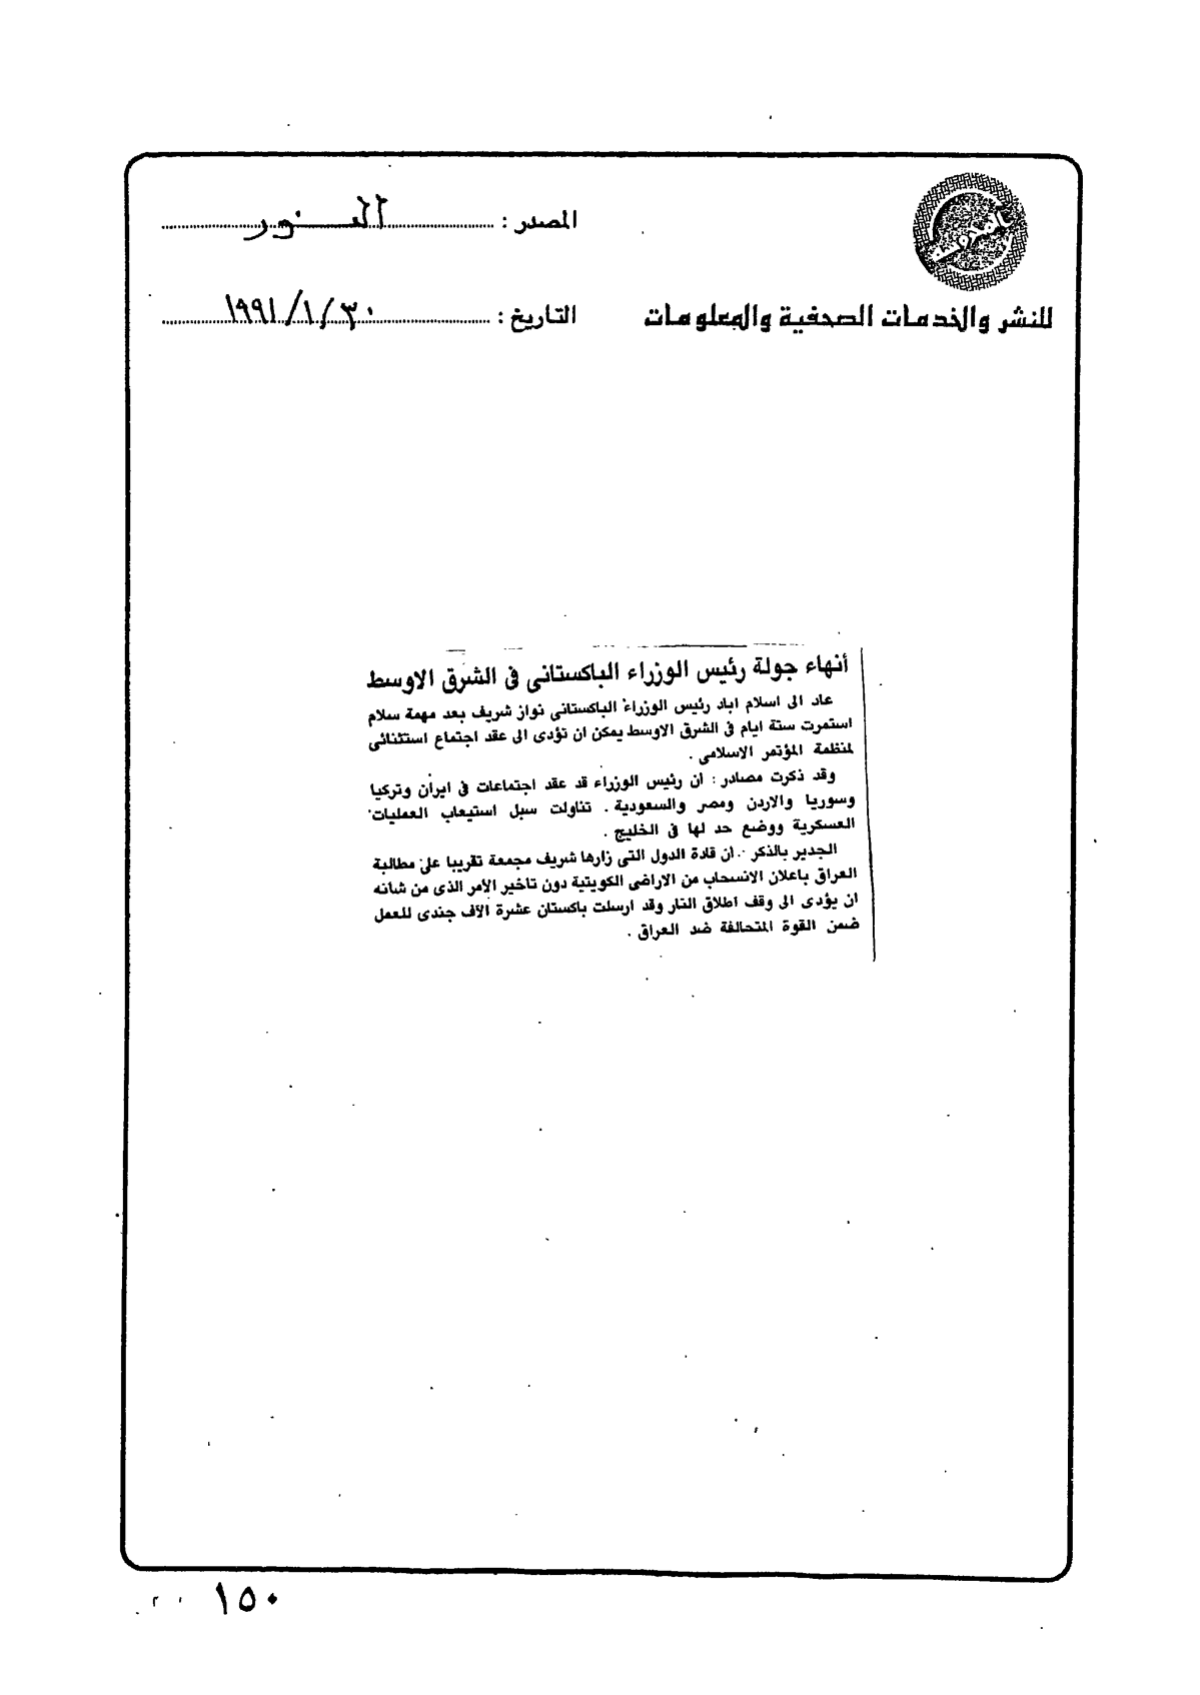 المصدر : النور
للنشر والخدمات الصحفية والمعلومات
التاريخ : ٣٠/١/١٩٩١
أنهاء جولة رئيس الوزراء الباكستانى فى الشرق الاوسط
عاد الى اسلام اباد رئيس الوزراء الباكستانى نواز شريف بعد مهمة سلام
استمرت ستة ايام فى الشرق الاوسط يمكن ان تؤدى الى عقد اجتماع استثنائى
لمنظمة المؤتمر الاسلامى .
وقد ذكرت مصادر : ان رئيس الوزراء قد عقد اجتماعات فى ايران وتركيا
وسوريا والاردن ومصر والسعودية . تناولت سبل استيعاب العمليات
العسكرية ووضع حد لها فى الخليج .
الجدير بالذكر . ان قادة الدول التى زارها شريف مجمعة تقريبا على مطالبة
العراق باعلان الانسحاب من الاراضى الكويتية دون تاخير الأمر الذى من شانه
ان يؤدى الى وقف اطلاق النار وقد ارسلت باكستان عشرة الآف جندى للعمل
ضمن القوة المتحالفة ضد العراق .
١٥٠